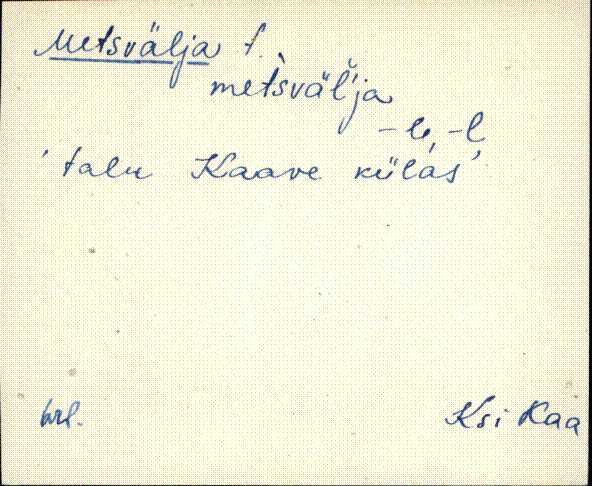 Metsvälja t.
metsvälja
-le, -l
'talu Kaave külas'
Ksi Kaa